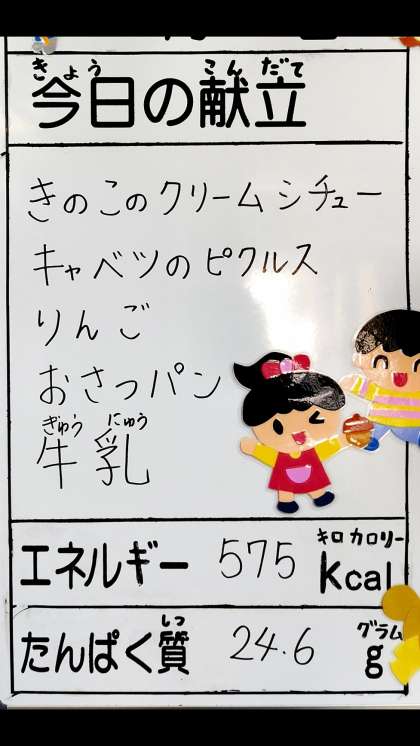 きょう こんだて
今日の献立
きのこのクリームシチュー
キャベツのピクルス
りんご
おさつパン
ぎゅう にゅう
牛乳
キロカロリー
エネルギー 575 kcal
しつ グラム
たんぱく質 24.6 g